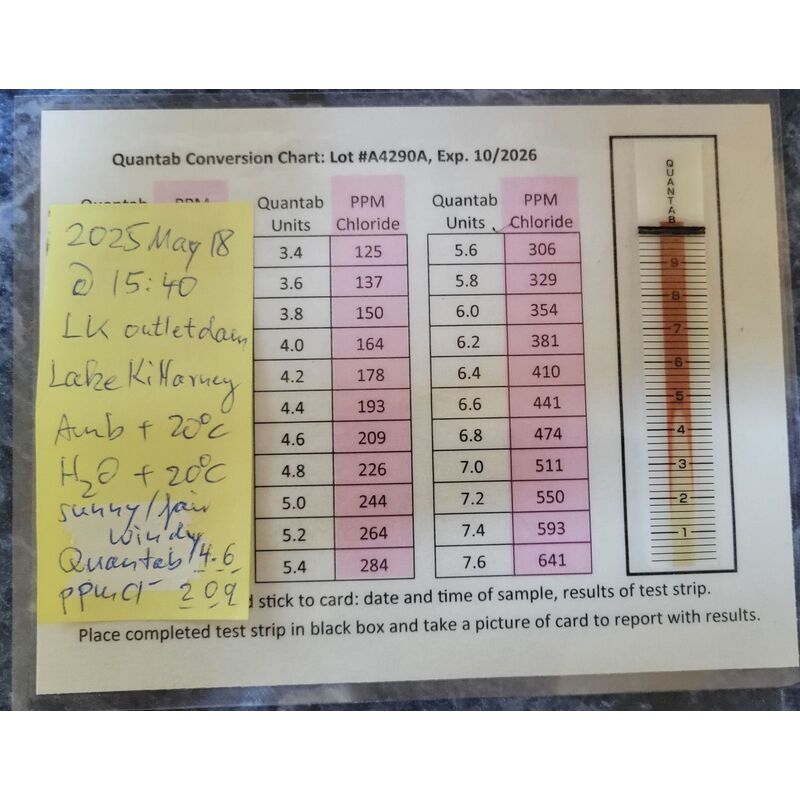 Quantab Conversion Chart: Lot #A4290A, Exp. 10/2026
Quantab PPM
Quantab PPM
Units Chloride
3.4 125
3.6 137
3.8 150
4.0 164
4.2 178
4.4 193
4.6 209
4.8 226
5.0 244
5.2 264
5.4 284
Quantab PPM
Units Chloride
5.6 306
5.8 329
6.0 354
6.2 381
6.4 410
6.6 441
6.8 474
7.0 511
7.2 550
7.4 593
7.6 641
QUANTAB
9
8
7
6
5
4
3
2
1
2025 May 18
@ 15:40
LK outlet dam
Lake Killarney
Amb + 20°C
H2O + 20°C
sunny/fair
windy
Quantab 4.6
ppm Cl⁻ 209
stick to card: date and time of sample, results of test strip.
Place completed test strip in black box and take a picture of card to report with results.